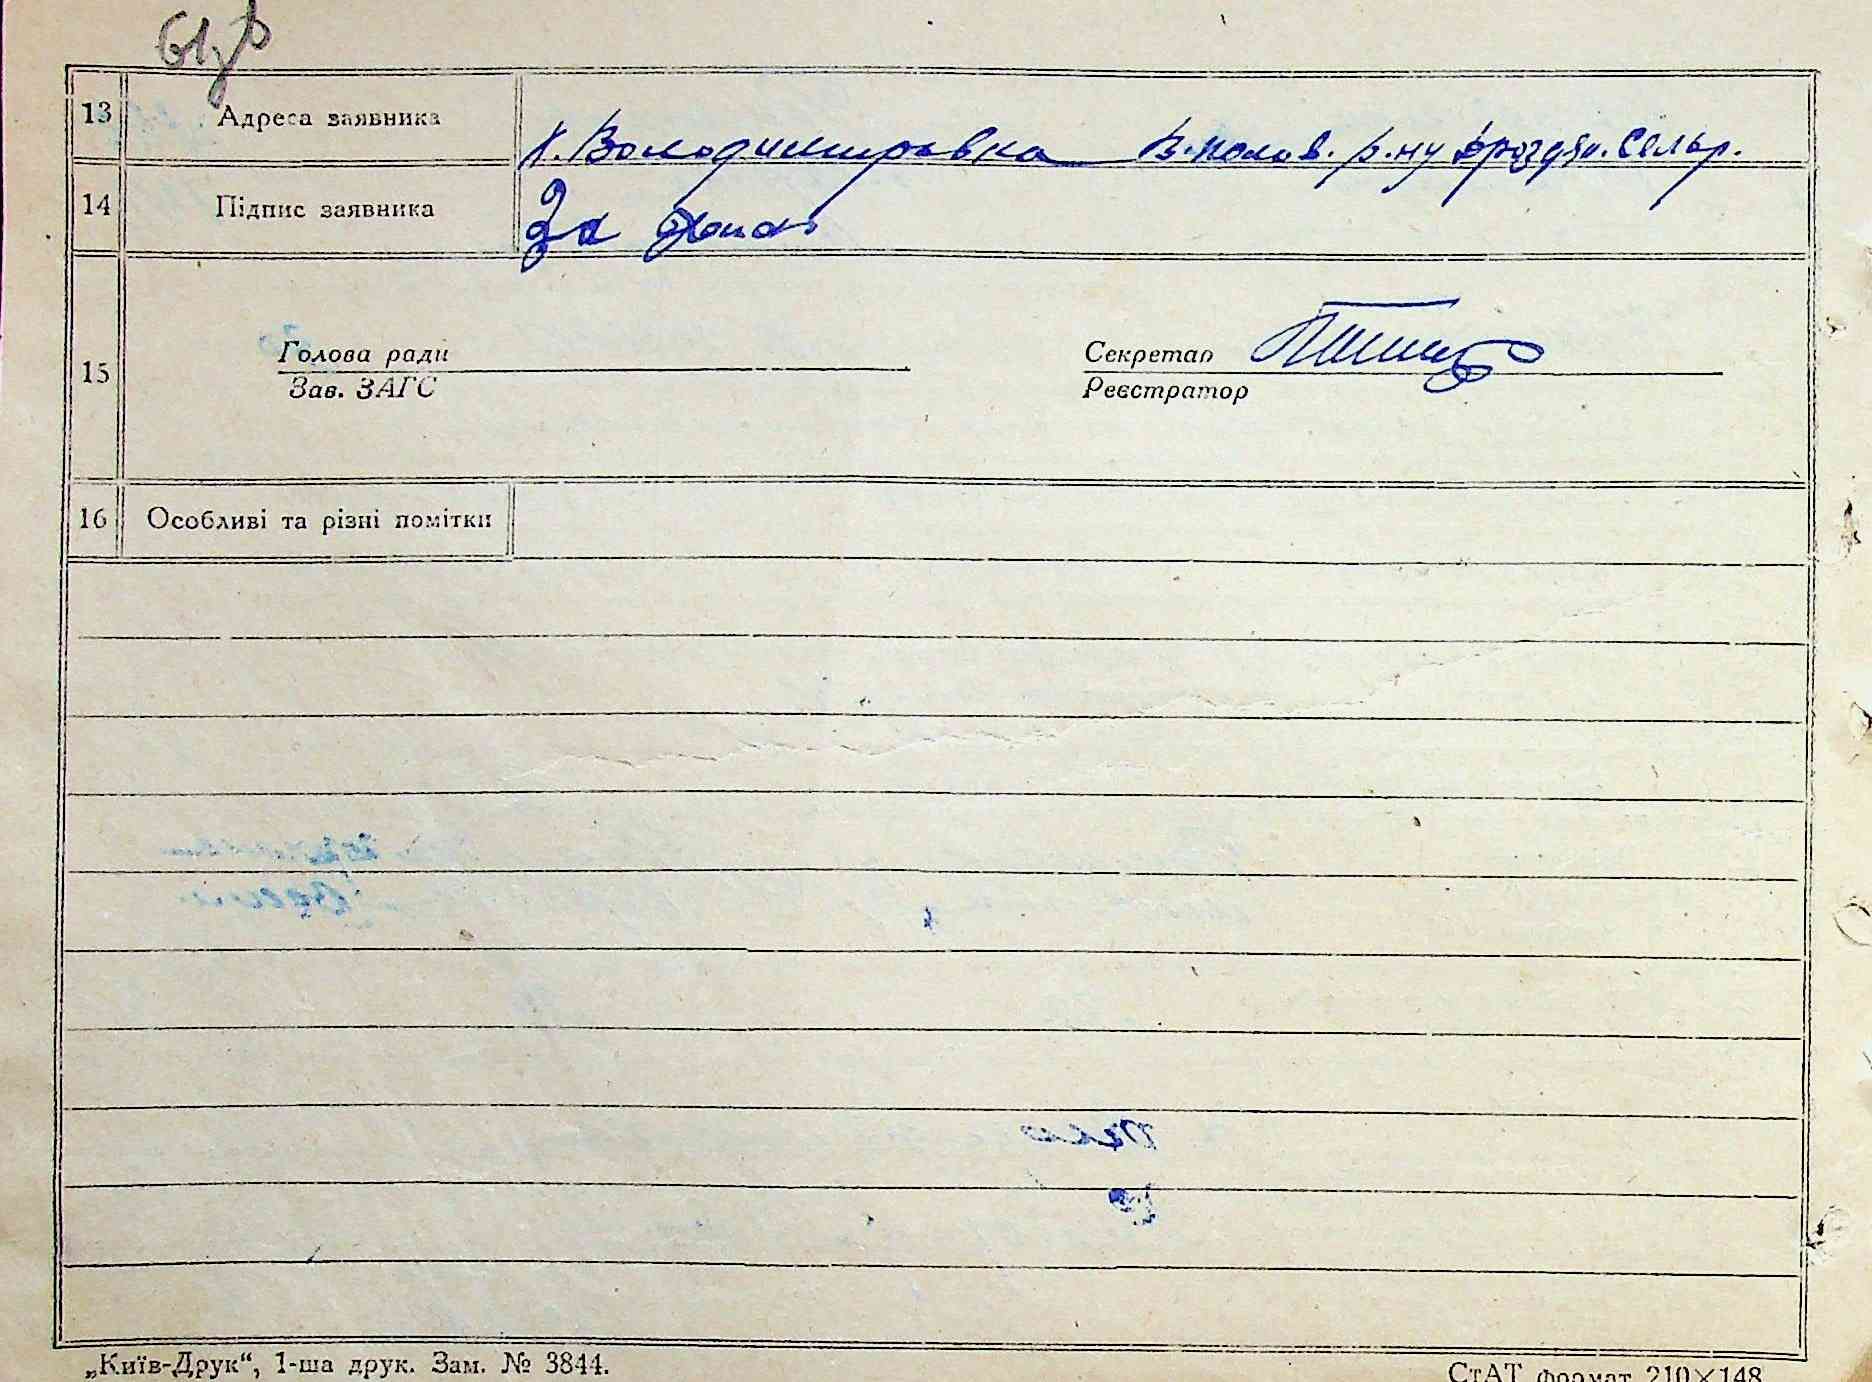 13 Адреса заявника х. Володимировка В.полов. р.ну Сельр.
14 Підпис заявника За
Голова ради Секретар
15
Зав. ЗАГС Реєстратор
16 Особливі та різні помітки
„Київ-Друк“, 1-ша друк. Зам. № 3844. СтАТ формат 210×148